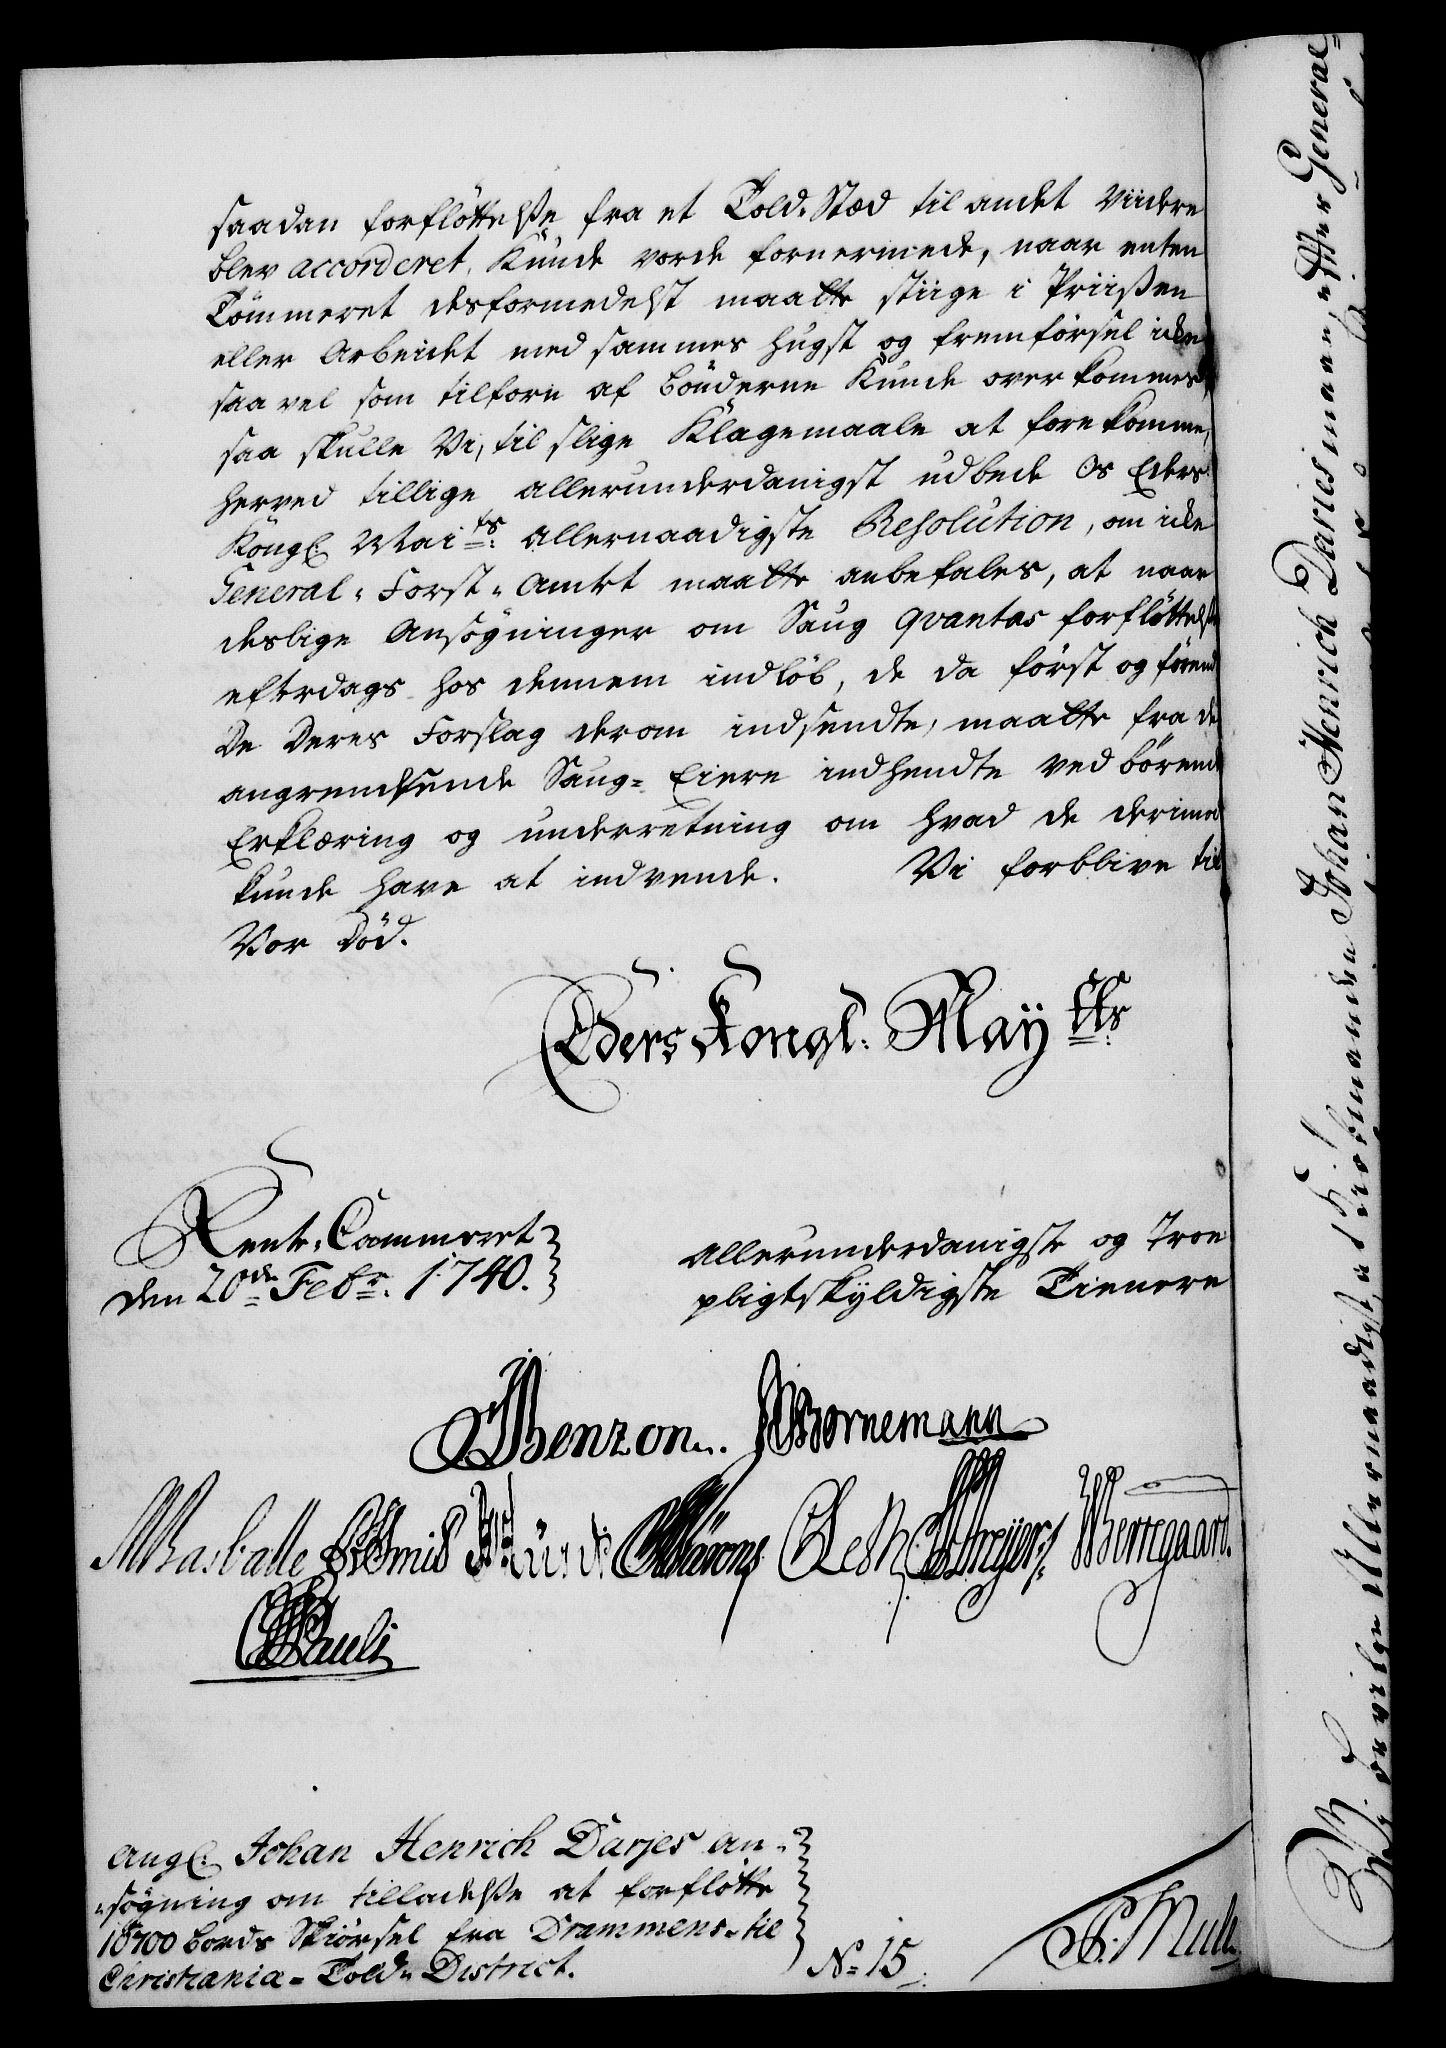 saadan forfløttelße fra et Told-Stæd til andet viidere
blev accorderet, Kunde vorde fornermede, naar enten
Tömmeret desformedelst maatte stiige i Priißen
eller Arbeidet med sammes hugst og fremförsel icke
saavel som tilforn af Bönderne Kunde overkommes,
saa skulle Vi, til slige Klagemaale at forekomme,
herved tillige allerunderdanigst udbede Os Eders
Kongl: Maits allernaadigste Resolution, om icke
General-Forst-Amtet maatte anbefales, at naar
deslige Ansögninger om Saug qvantas forfløttelse
efterdags hos dennem indlöb, de da först og förend
De Deres Forslag derom indsendte, maatte fra de
angrendsende Saug-Eiere indhendte vedbörende
Erklæring og underretning om hvad de derimod
kunde have at indvende. Vi forblive til
Vor Död.
Eders Kongl. Maytts
Rente-Cammeret
den 20de Febr. 1740.
allerunderdanigste og Troe
pligtskyldigste Tienere
Benzon. Bornemann
Basballe Smid
Wartegaard.
Pauli
angl: Johan Henrich Darjes an-
-søgning om tilladelße at forfløtte
18700 bords Skiørsel fra Drammens- til
Christiania-Told-District.
No 15.
Bevilge Allernaadigst, at Kiøbmanden Johan Henrich Daries maae, efter General-